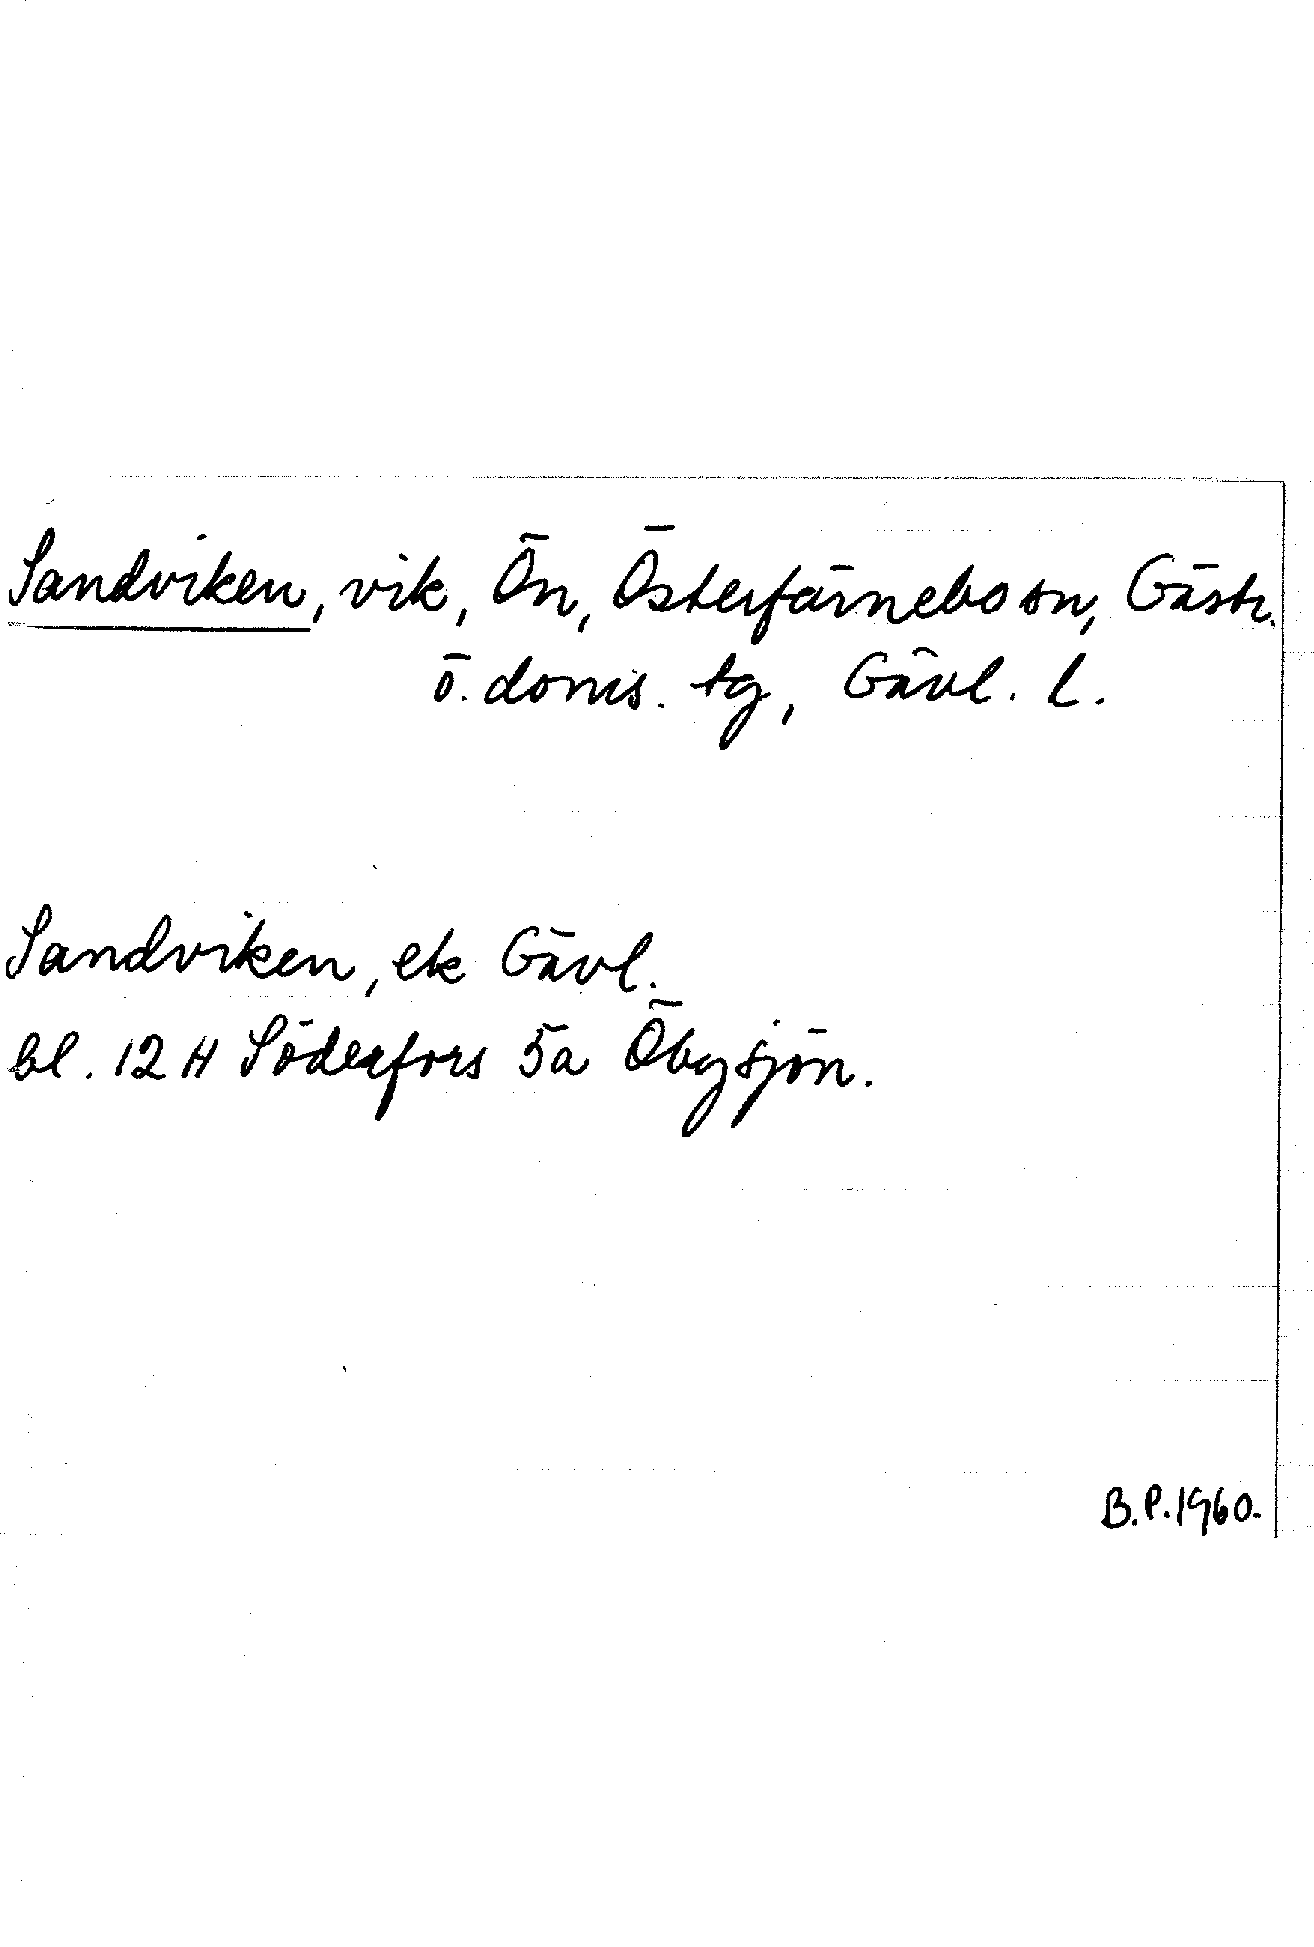 Sandviken, vik, Ön, Österfärnebo sn, Gästr.
ö. doms. tg, Gävl. l.
Sandviken, ek Gävl.
bl. 12 H Söderfors 5a Öbysjön.
B.P.1960.